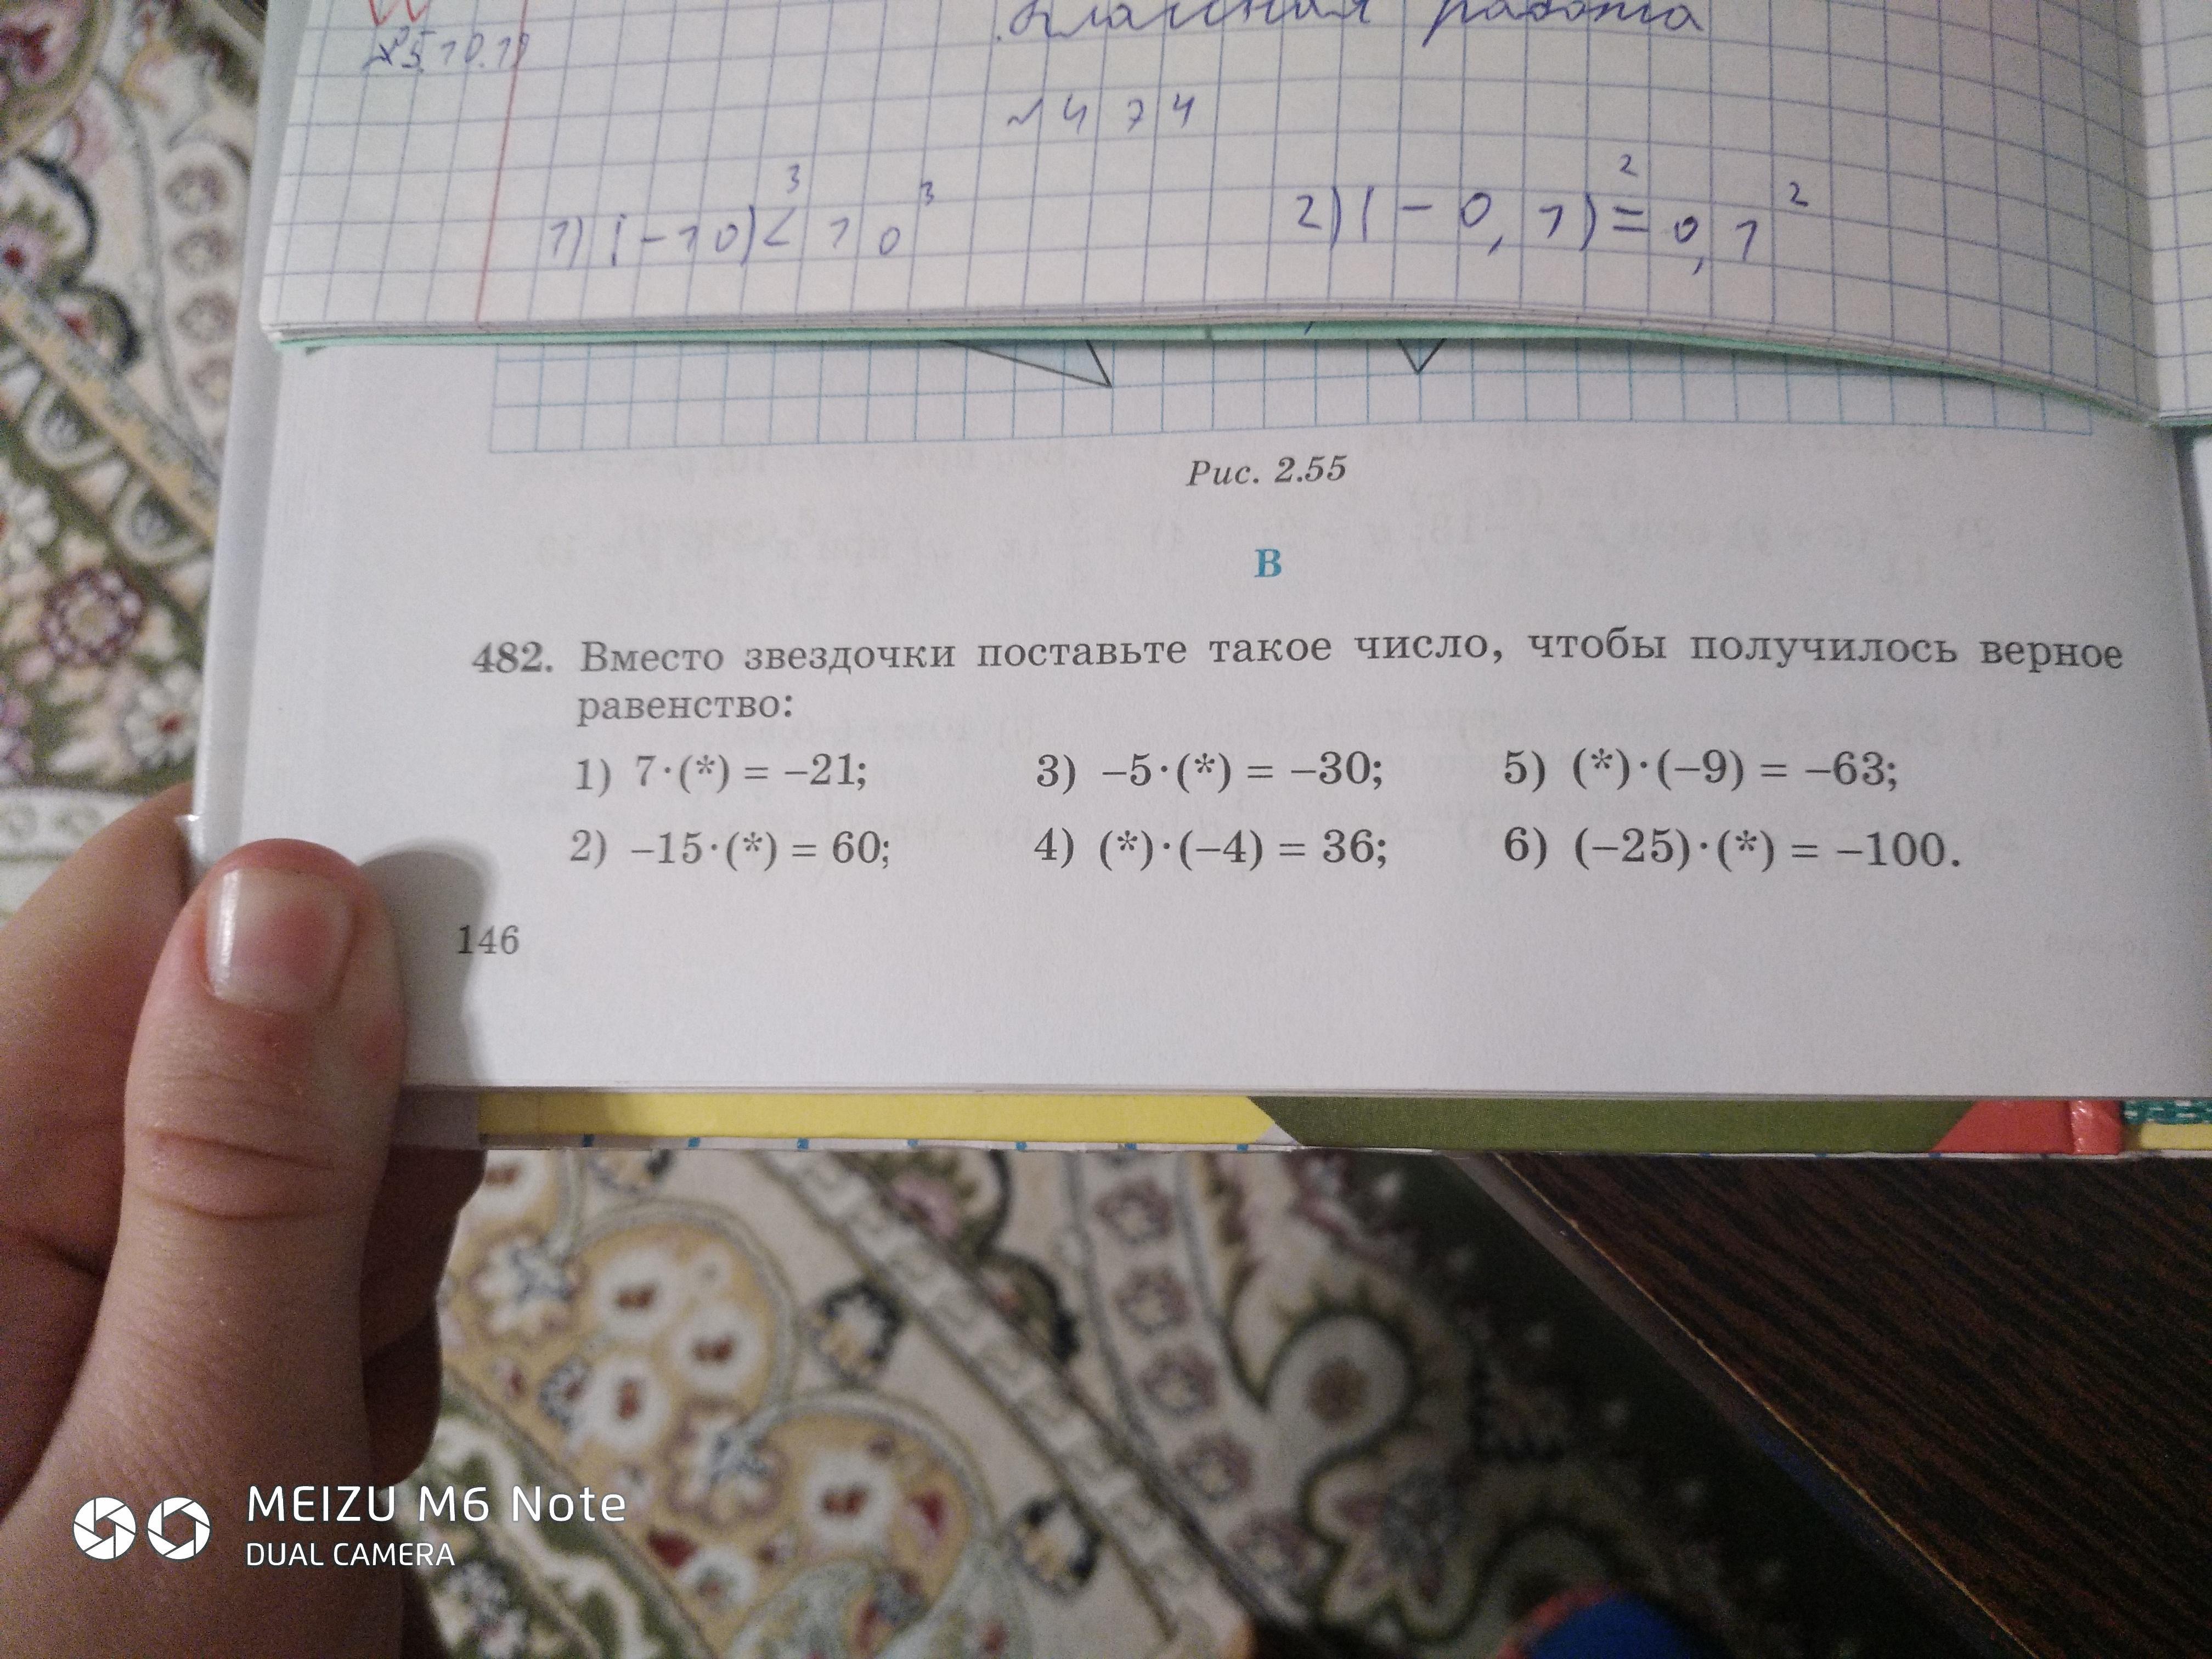 25.10.19
Классная работа
№474
1) (-10)³ < 10³
2) (-0,1)² = 0,1²
Рис. 2.55
В
482. Вместо звездочки поставьте такое число, чтобы получилось верное
равенство:
1) 7·(*) = –21;
3) –5·(*) = –30;
5) (*)·(–9) = –63;
2) –15·(*) = 60;
4) (*)·(–4) = 36;
6) (–25)·(*) = –100.
146
MEIZU M6 Note
DUAL CAMERA